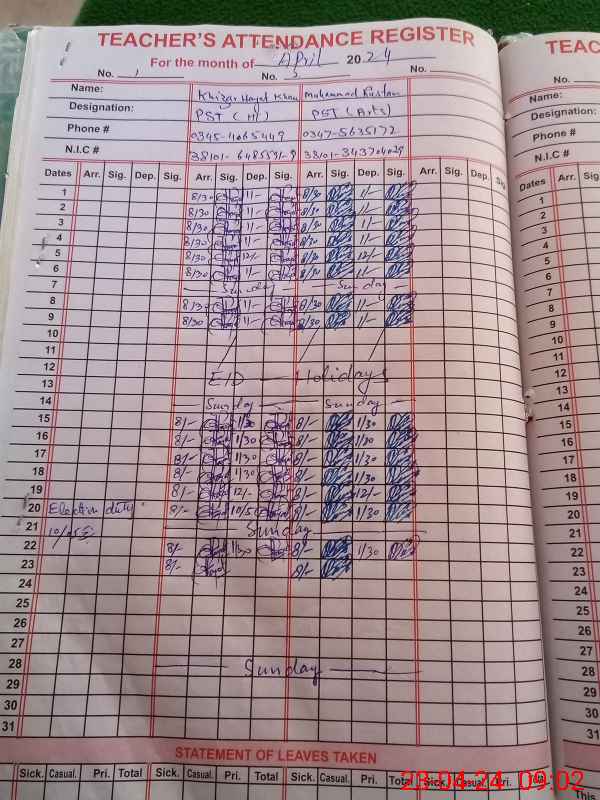 TEACHER'S ATTENDANCE REGISTER
For the month of April 2024
No. 1 No. 2 No.
Name: Khizar Hayat Khan Muhammad Rustam
Designation: PST (M) PST (Arts)
Phone # 0345-4065449 0347-5635172
N.I.C # 38101-6485591-9
Dates Arr. Sig. Dep. Sig. Arr. Sig. Dep. Sig. Arr. Sig. Dep. Sig. Arr. Sig. Dep. Sig.
1 8/30 11/- 8/30 11/-
2 8/30 11/- 8/30 11/-
3 8/30 11/- 8/30 11/-
4 8/30 11/- 8/30 11/-
5 8/30 12/- 8/30 12/-
6 8/30 11/- 8/30 11/-
7 Sunday Sunday
8 8/30 11/- 8/30 11/-
9 8/30 11/- 8/30 11/-
10
11
12
13 EID Holidays
14 Sunday Sunday
15 8/- 1/30 8/- 1/30
16 8/- 1/30 8/- 1/30
17 8/- 1/30 8/- 1/30
18 8/- 1/30 8/- 1/30
19 8/- 12/- 8/- 12/-
20 Election duty 8/- 10/50 8/- 1/30
21 Sunday
22 8/- 1/30 8/- 1/30
23 8/- 8/-
24
25
26
27
28 Sunday
29
30
31
STATEMENT OF LEAVES TAKEN
Sick. Casual. Pri. Total Sick. Casual. Pri. Total Sick. Casual. Pri. Total Sick. Casual. Pri. Total
TEAC
Name:
Designation:
Phone #
N.I.C #
Dates Arr. Sig.
1
2
3
4
5
6
7
8
9
10
11
12
13
14
15
16
17
18
19
20
21
22
23
24
25
26
27
28
29
30
31
This
23-04-24 09:02